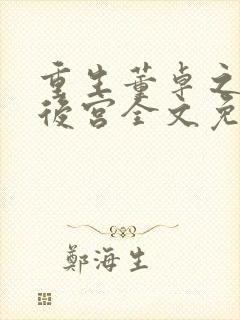 重生董卓之
後宮全文免
鄭海生